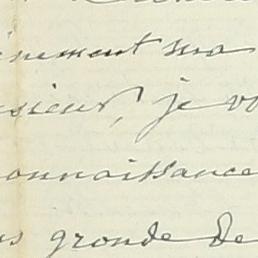 énement ma
sieur, je vo
onnaissance
us gronde de